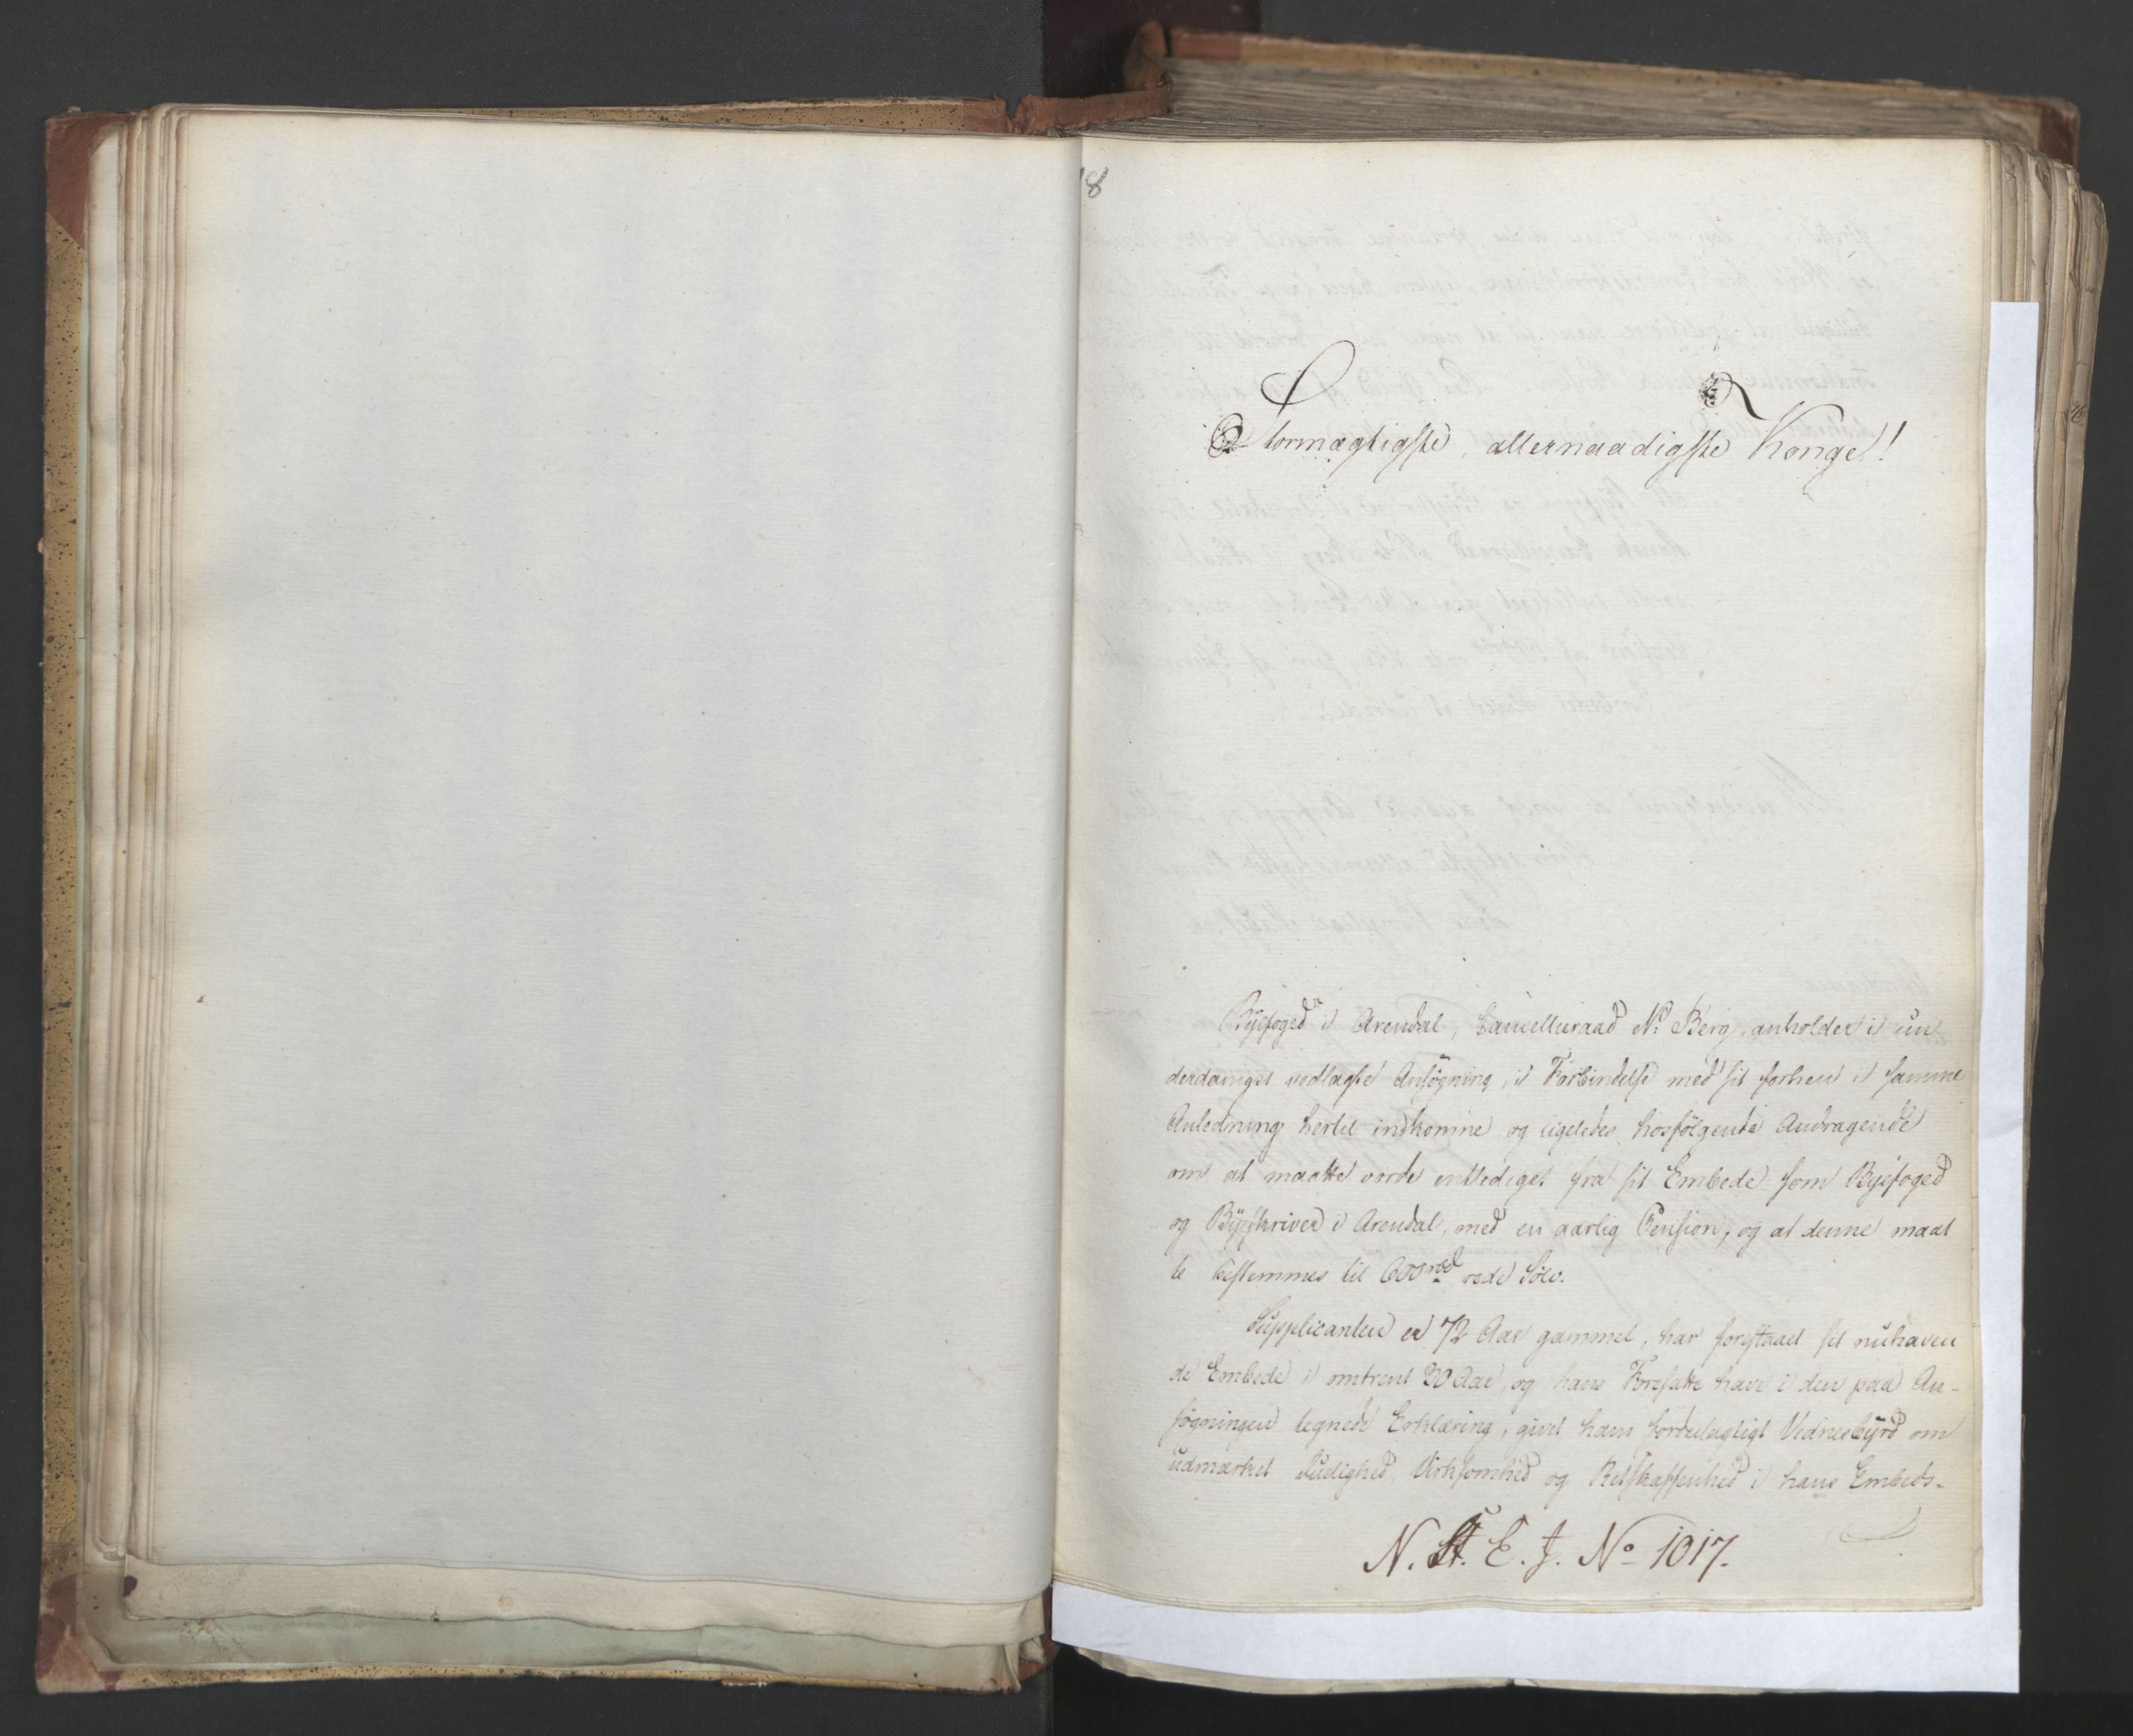 8
Stormægtigste, allernaadigste Konge!
Byefoged i Arendal, Cancelliraad Ns Berg, anholder i un
derdanigst vedlagte Ansøgning, i Forbindelse med sit forhen i samme
Anledning hertil indkomne og ligeledes hosfølgende Andragende
om at maatte vorde entlediget fra sit Embede som Byefoged
og Byeskriver i Arendal, med en aarlig Pension, og at denne maat
te bestemmes til 600 rbd rede Sølv.
Supplicanten er 72 Aar gammel, har forestaaet sit nuhaven
de Embede i omtrent 30 Aar, og hans Foresatte have i den paa An-
søgningen tegnede Erklæring, givet ham fordeelagtigt Vidnesbyrd om
udmærket Duelighed, Virksomhed og Retskaffenhed i hans Embeds-
N. St. E. J. No 1017.